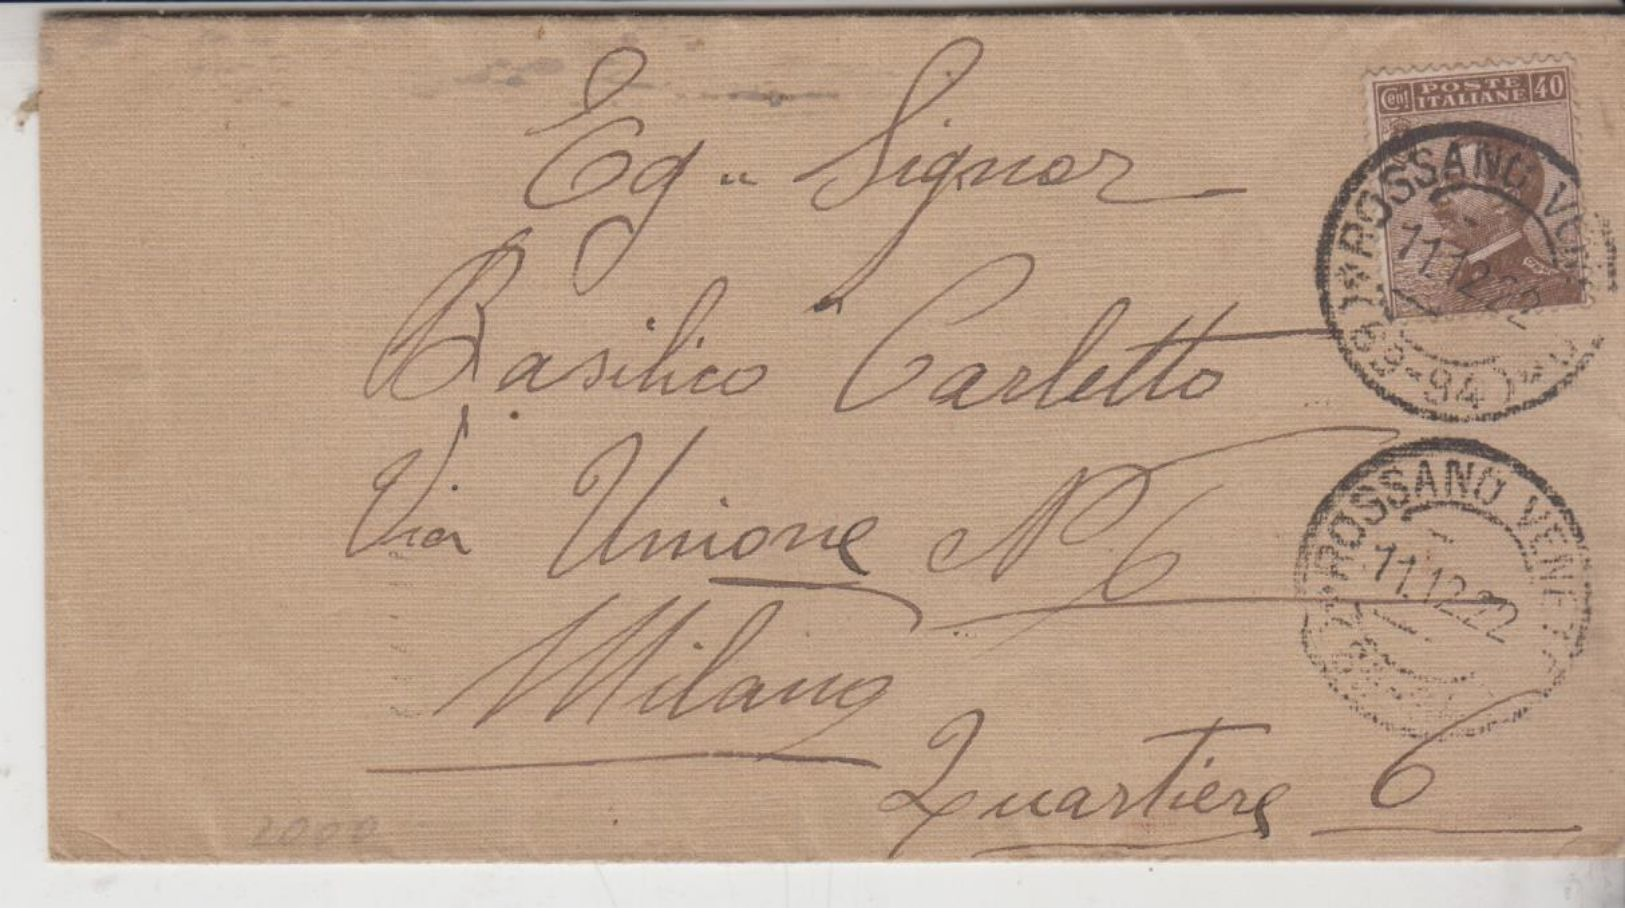 Cent POSTE ITALIANE 40
ROSSANO VEN
11.12.22
(69-94)
Eg.. Signor
Basilico Carletto
Via Unione N 6
Milano
Quartiere 6
ROSSANO VENETO
11.12.22
2000